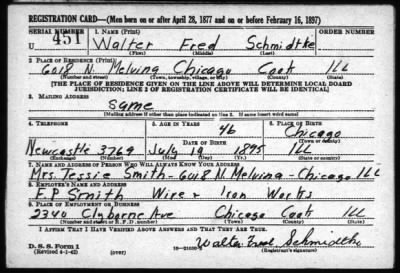 REGISTRATION CARD—(Men born on or after April 28, 1877 and on or before February 16, 1897)
SERIAL NUMBER 1. NAME (Print) ORDER NUMBER
U 451 Walter Fred Schmidtke
(First) (Middle) (Last)
2. PLACE OF RESIDENCE (Print)
6018 N. Melvina Chicago Cook Ill
(Number and street) (Town, township, village, or city) (County) (State)
[THE PLACE OF RESIDENCE GIVEN ON THE LINE ABOVE WILL DETERMINE LOCAL BOARD
JURISDICTION; LINE 2 OF REGISTRATION CERTIFICATE WILL BE IDENTICAL]
3. MAILING ADDRESS
Same
[Mailing address if other than place indicated on line 2. If same insert word same]
4. TELEPHONE 5. AGE IN YEARS 6. PLACE OF BIRTH
46 Chicago
DATE OF BIRTH (Town or county)
Newcastle 3769 July 19 1895 Ill
(Exchange) (Number) (Mo.) (Day) (Yr.) (State or country)
7. NAME AND ADDRESS OF PERSON WHO WILL ALWAYS KNOW YOUR ADDRESS
Mrs. Jessie Smith-6018 N. Melvina-Chicago Ill
8. EMPLOYER'S NAME AND ADDRESS
F. P. Smith Wire & Iron Works
9. PLACE OF EMPLOYMENT OR BUSINESS
2340 Clyborne Ave Chicago Cook Ill
(Number and street or R. F. D. number) (Town) (County) (State)
I AFFIRM THAT I HAVE VERIFIED ABOVE ANSWERS AND THAT THEY ARE TRUE.
D. S. S. Form 1
(Revised 4-1-42) (over) Walter Fred Schmidtke
(Registrant's signature)